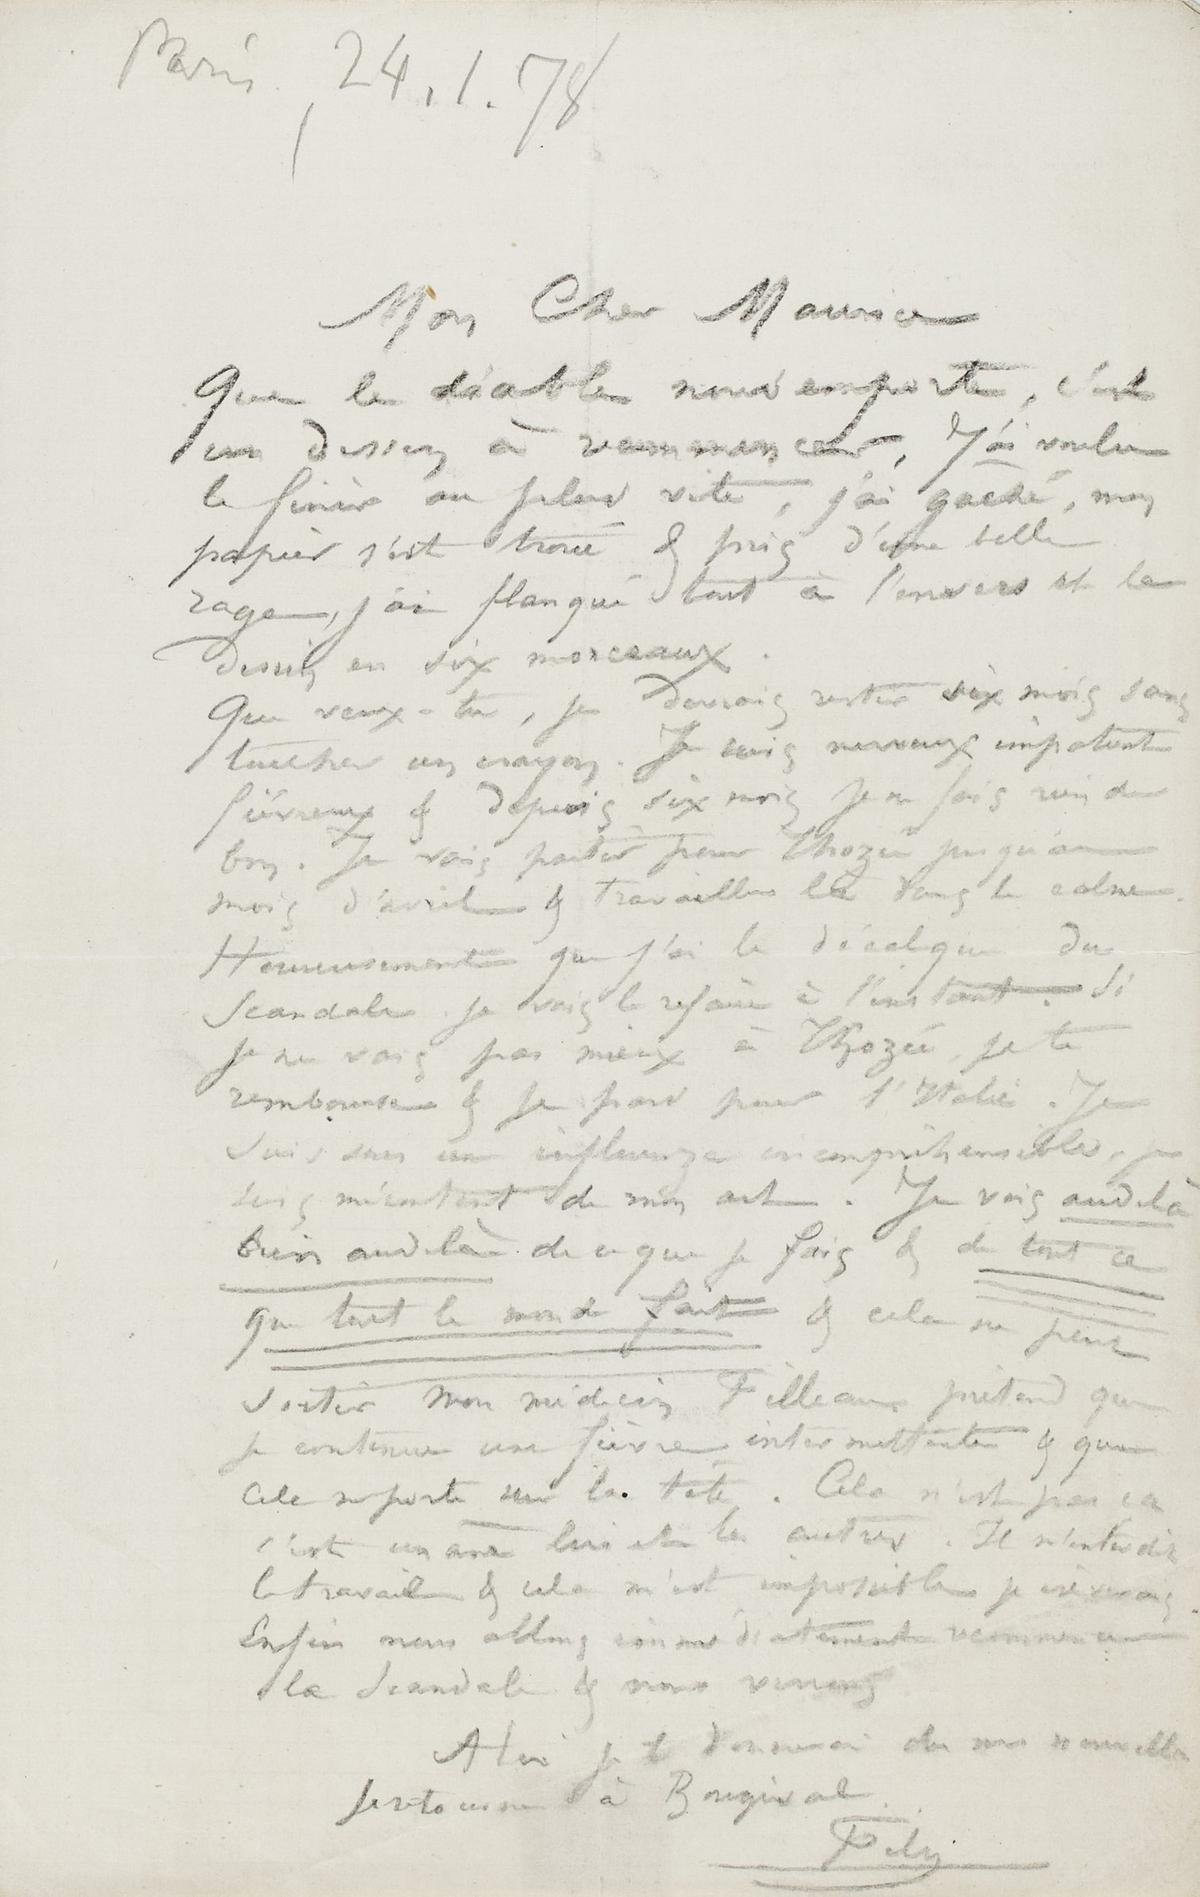 Paris, 24.1.78
Mon Cher Maurice
Que le diable nous emporte, c'est
un dessin à recommencer, J'ai voulu
le finir au plus vite, j'ai gaché, mon
papier s'est troué & pris d'une belle
rage, j'ai flanqué tout à l'envers et le
dessin en six morceaux.
Que veux-tu, je devrais rester six mois sans
toucher un crayon. Je suis nerveux impotent
fiévreux & depuis six mois je ne fais rien de
bon. Je vais partir pour Thozée jusqu'au
mois d'avril & travailler là dans le calme.
Heureusement que j'ai le décalque du
Scandale je vais le refaire à l'instant. Si
je ne vais pas mieux à Thozée, je te
rembourse & je pars pour l'Italie. Je
suis sous une influenza incompréhensible, je
suis mécontent de mon art. Je vois audelà
bien audelà de ce que je fais & de tout ce
que tout le monde fait & cela ne peut
sortir Mon médecin Filleau prétend que
je continue une fièvre intermittente & que
cela se porte sur la tête. Cela n'est pas ça
c'est un âne lui et les autres. Il m'interdit
le travail & cela m'est impossible je
Enfin nous allons immédiatement recommencer
le Scandale & nous verrons
je te donnerai de mes nouvelles
Je retourne à Bougival.
Fély